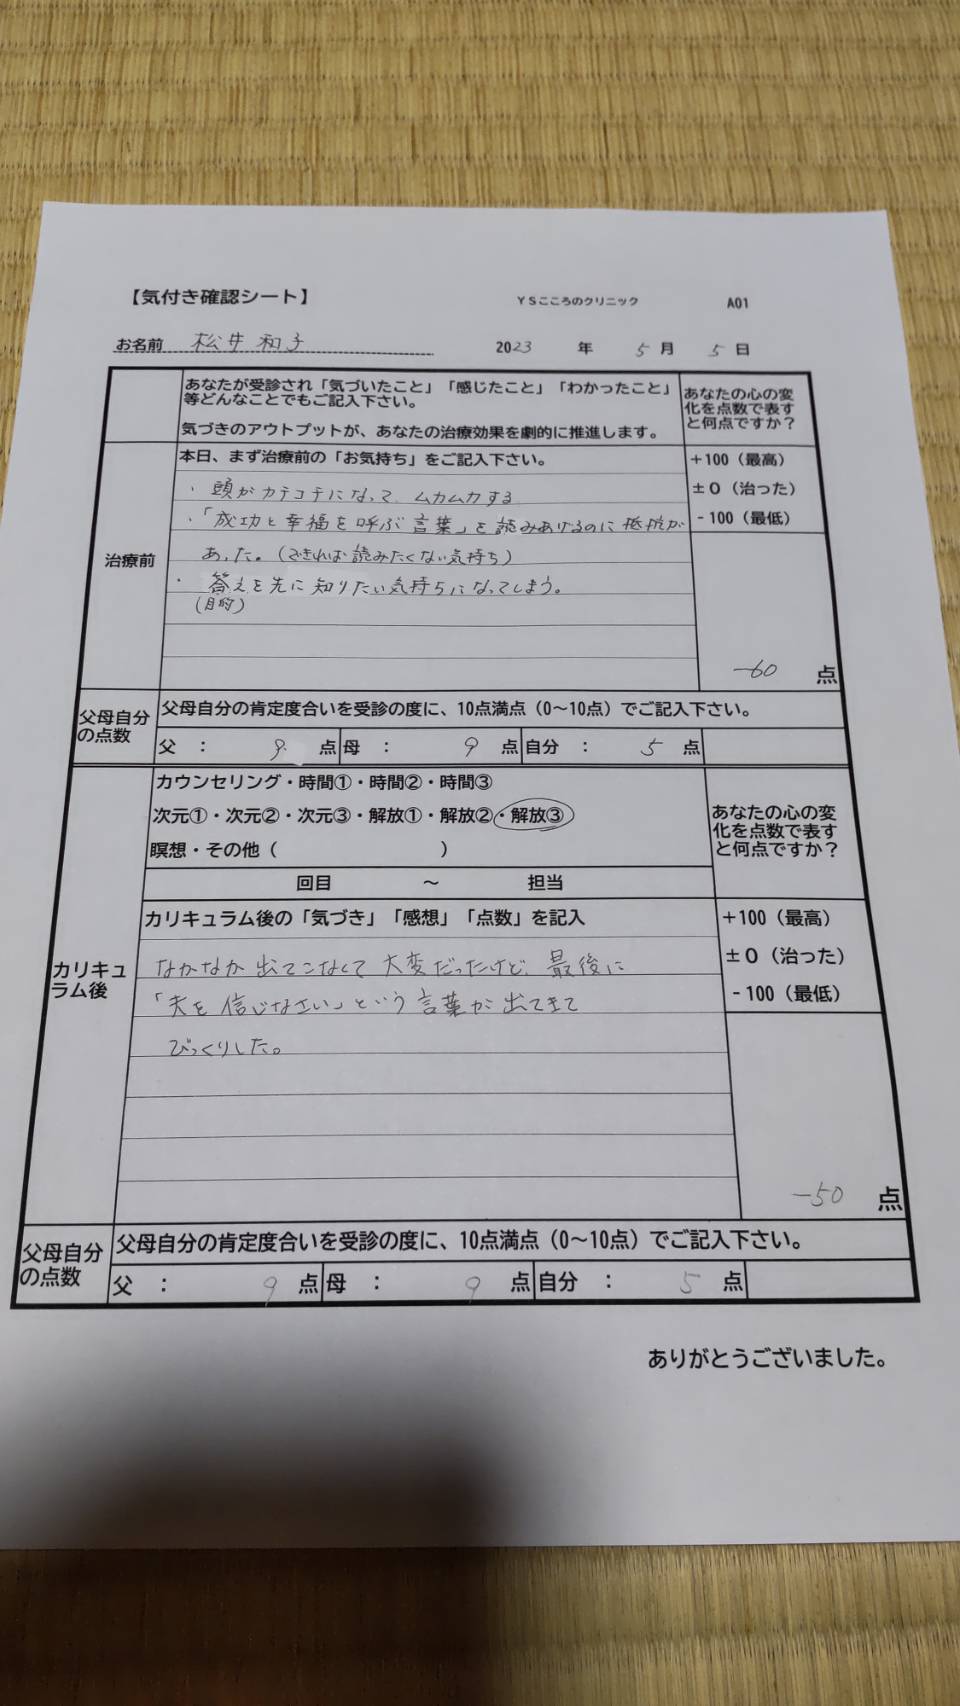 【気付き確認シート】 YSこころのクリニック A01
お名前 松井和子 2023年 5月 5日
あなたが受診され「気づいたこと」「感じたこと」「わかったこと」
等どんなことでもご記入下さい。
気づきのアウトプットが、あなたの治療効果を劇的に推進します。
あなたの心の変
化を点数で表す
と何点ですか?
治療前
本日、まず治療前の「お気持ち」をご記入下さい。
・頭がカチコチになって ムカムカする
・「成功と幸福を呼ぶ言葉」を読みあげるのに抵抗が
あった。(できれば読みたくない気持ち)
・答えを先に知りたい気持ちになってしまう。
(目的)
+100(最高)
±0(治った)
-100(最低)
-60 点
父母自分
の点数
父母自分の肯定度合いを受診の度に、10点満点(0~10点)でご記入下さい。
父 : 9 点 母 : 9 点 自分 : 5 点
カリキュ
ラム後
カウンセリング・時間①・時間②・時間③
次元①・次元②・次元③・解放①・解放②・解放③
瞑想・その他( )
回目 ~ 担当
あなたの心の変
化を点数で表す
と何点ですか?
カリキュラム後の「気づき」「感想」「点数」を記入
なかなか出てこなくて大変だったけど、最後に
「夫を信じなさい」という言葉が出てきて
びっくりした。
+100(最高)
±0(治った)
-100(最低)
-50 点
父母自分
の点数
父母自分の肯定度合いを受診の度に、10点満点(0~10点)でご記入下さい。
父 : 9 点 母 : 9 点 自分 : 5 点
ありがとうございました。